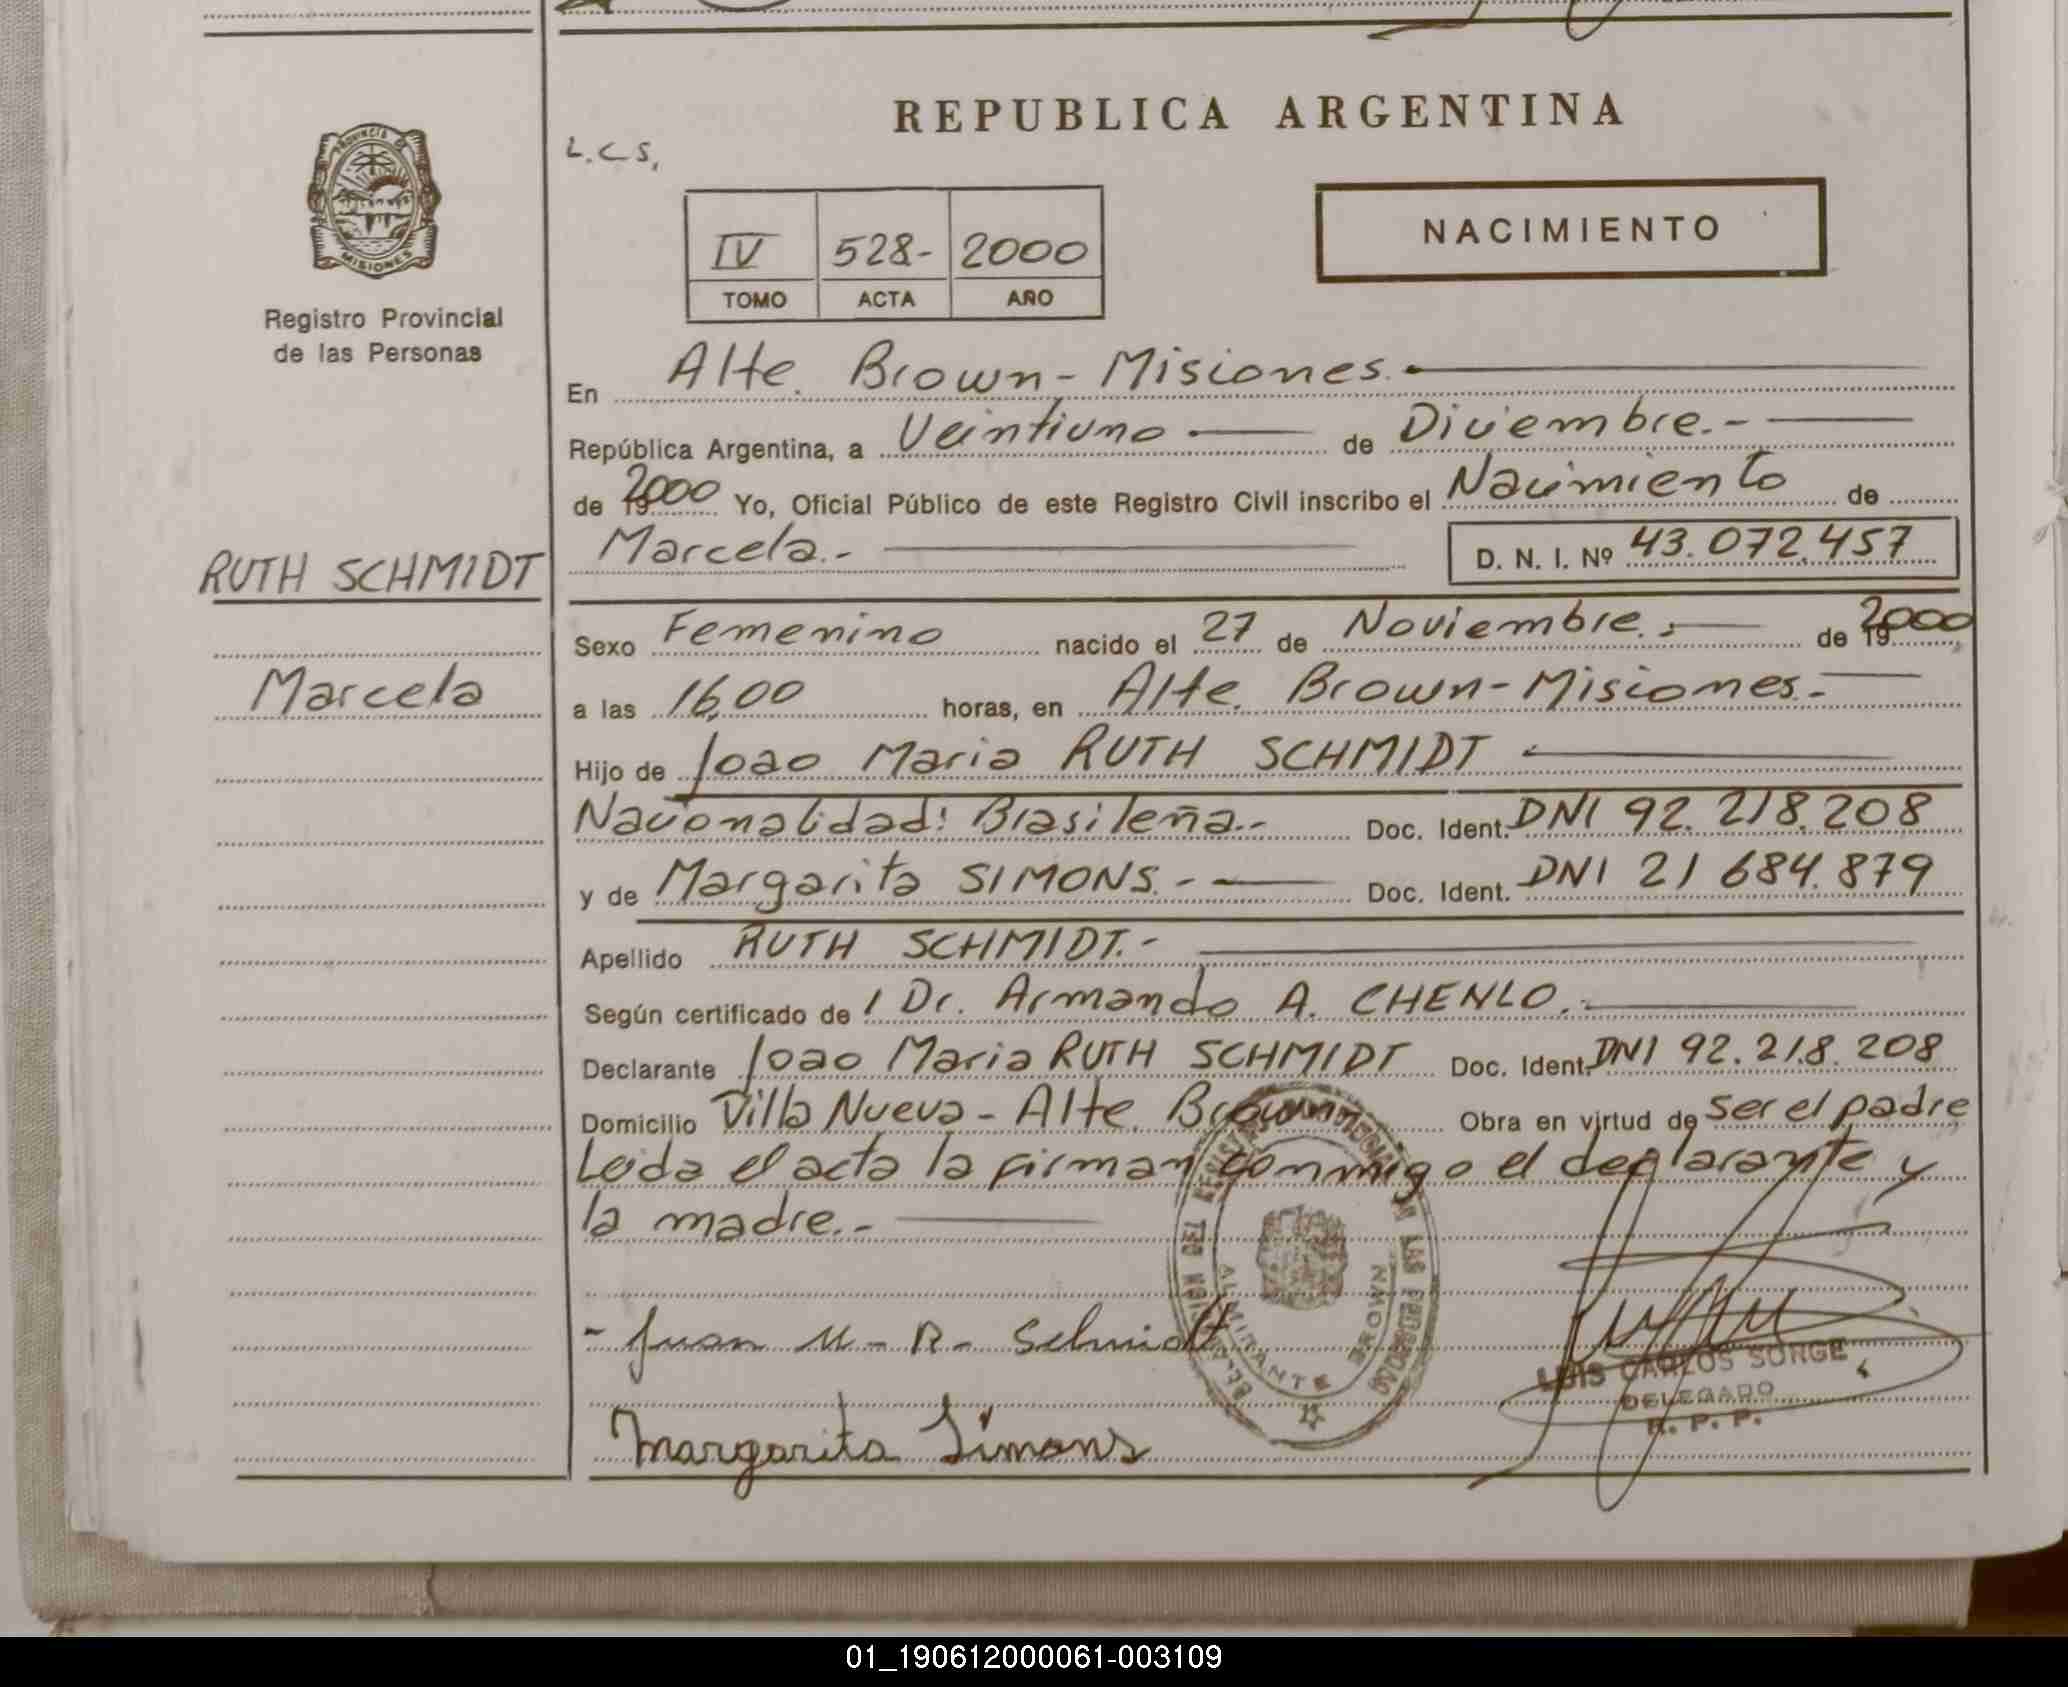 REPUBLICA ARGENTINA
L.C.S.
PROVINCIA DE
MISIONES
Registro Provincial
de las Personas
NACIMIENTO
IV 528- 2000
TOMO ACTA AÑO
En Alte. Brown - Misiones.
República Argentina, a Veintiuno de Diciembre.-
de 19 2000 Yo, Oficial Público de este Registro Civil inscribo el Nacimiento de
Marcela.- D. N. I. Nº 43.072.457
RUTH SCHMIDT
Marcela
Sexo Femenino nacido el 27 de Noviembre.- de 19 2000
a las 16,00 horas, en Alte. Brown - Misiones.-
Hijo de Joao Maria RUTH SCHMIDT
Nacionalidad: Brasileña.- Doc. Ident. DNI 92.218.208
y de Margarita SIMONS.- Doc. Ident. DNI 21 684.879
Apellido RUTH SCHMIDT.-
Según certificado de / Dr. Armando A. CHENLO.-
Declarante Joao Maria RUTH SCHMIDT Doc. Ident. DNI 92.218.208
Domicilio Villa Nueva - Alte. Brown Obra en virtud de ser el padre
Leida el acta la firman conmigo el declarante y
la madre.-
- Juan M - R - Schmidt
ALMIRANTE BROWN
LUIS CARLOS SORGE
DELEGADO
R. P. P.
Margarita Simons
01_190612000061-003109